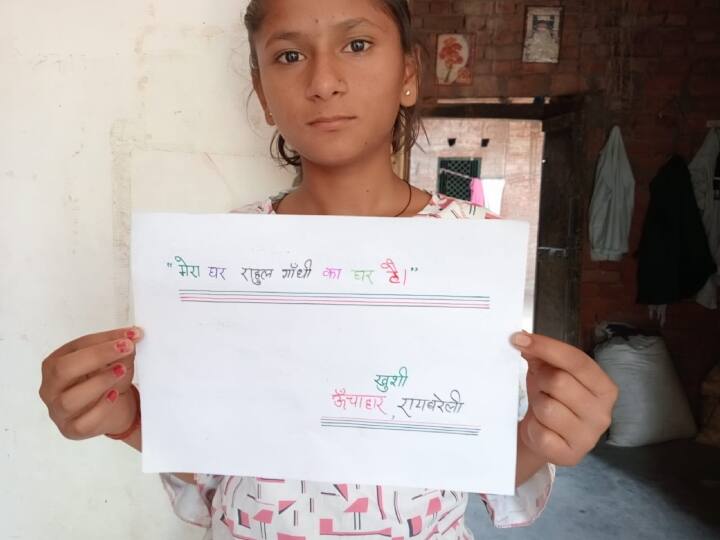 "मेरा घर राहुल गाँधी का घर है।"
खुशी
ऊँचाहार, रायबरेली